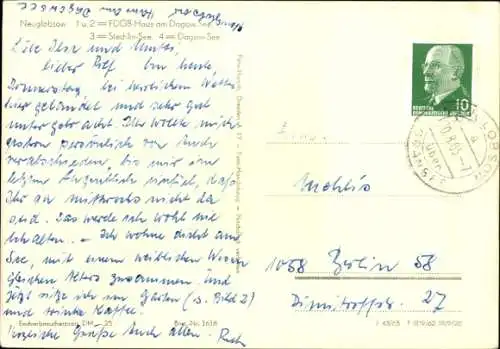 Neuglobsow 1 u. 2 = FDGB-Haus am Dagow-See
3 = Stechlin-See 4 = Dagow-See
Liebe Ilse und
lieber Rolf! Bin heute,
Donnerstag bei herrlichem Wetter
hier gelandet und sehr gut
untergebracht. Ich wollte mich
gestern persönlich von Euch
verabschieden, bis mir im
letzten Augenblick einfiel, daß
Ihr am Mittwochs nicht da
seid. Das werde ich wohl nie
behalten. – Ich wohne dicht am
See, mit einem weiblichen Wesen
gleichen Alters zusammen. Und
jetzt sitze ich im Garten (s. Bild 2)
und trinke Kaffee.
Herzliche Grüße Euch allen.
Endverbraucherpreis DM –,25 Best.-Nr. 1616
10
DEUTSCHE
DEMOKRATISCHE REPUBLIK
1058 Berlin 58
Dimitroffstr. 27